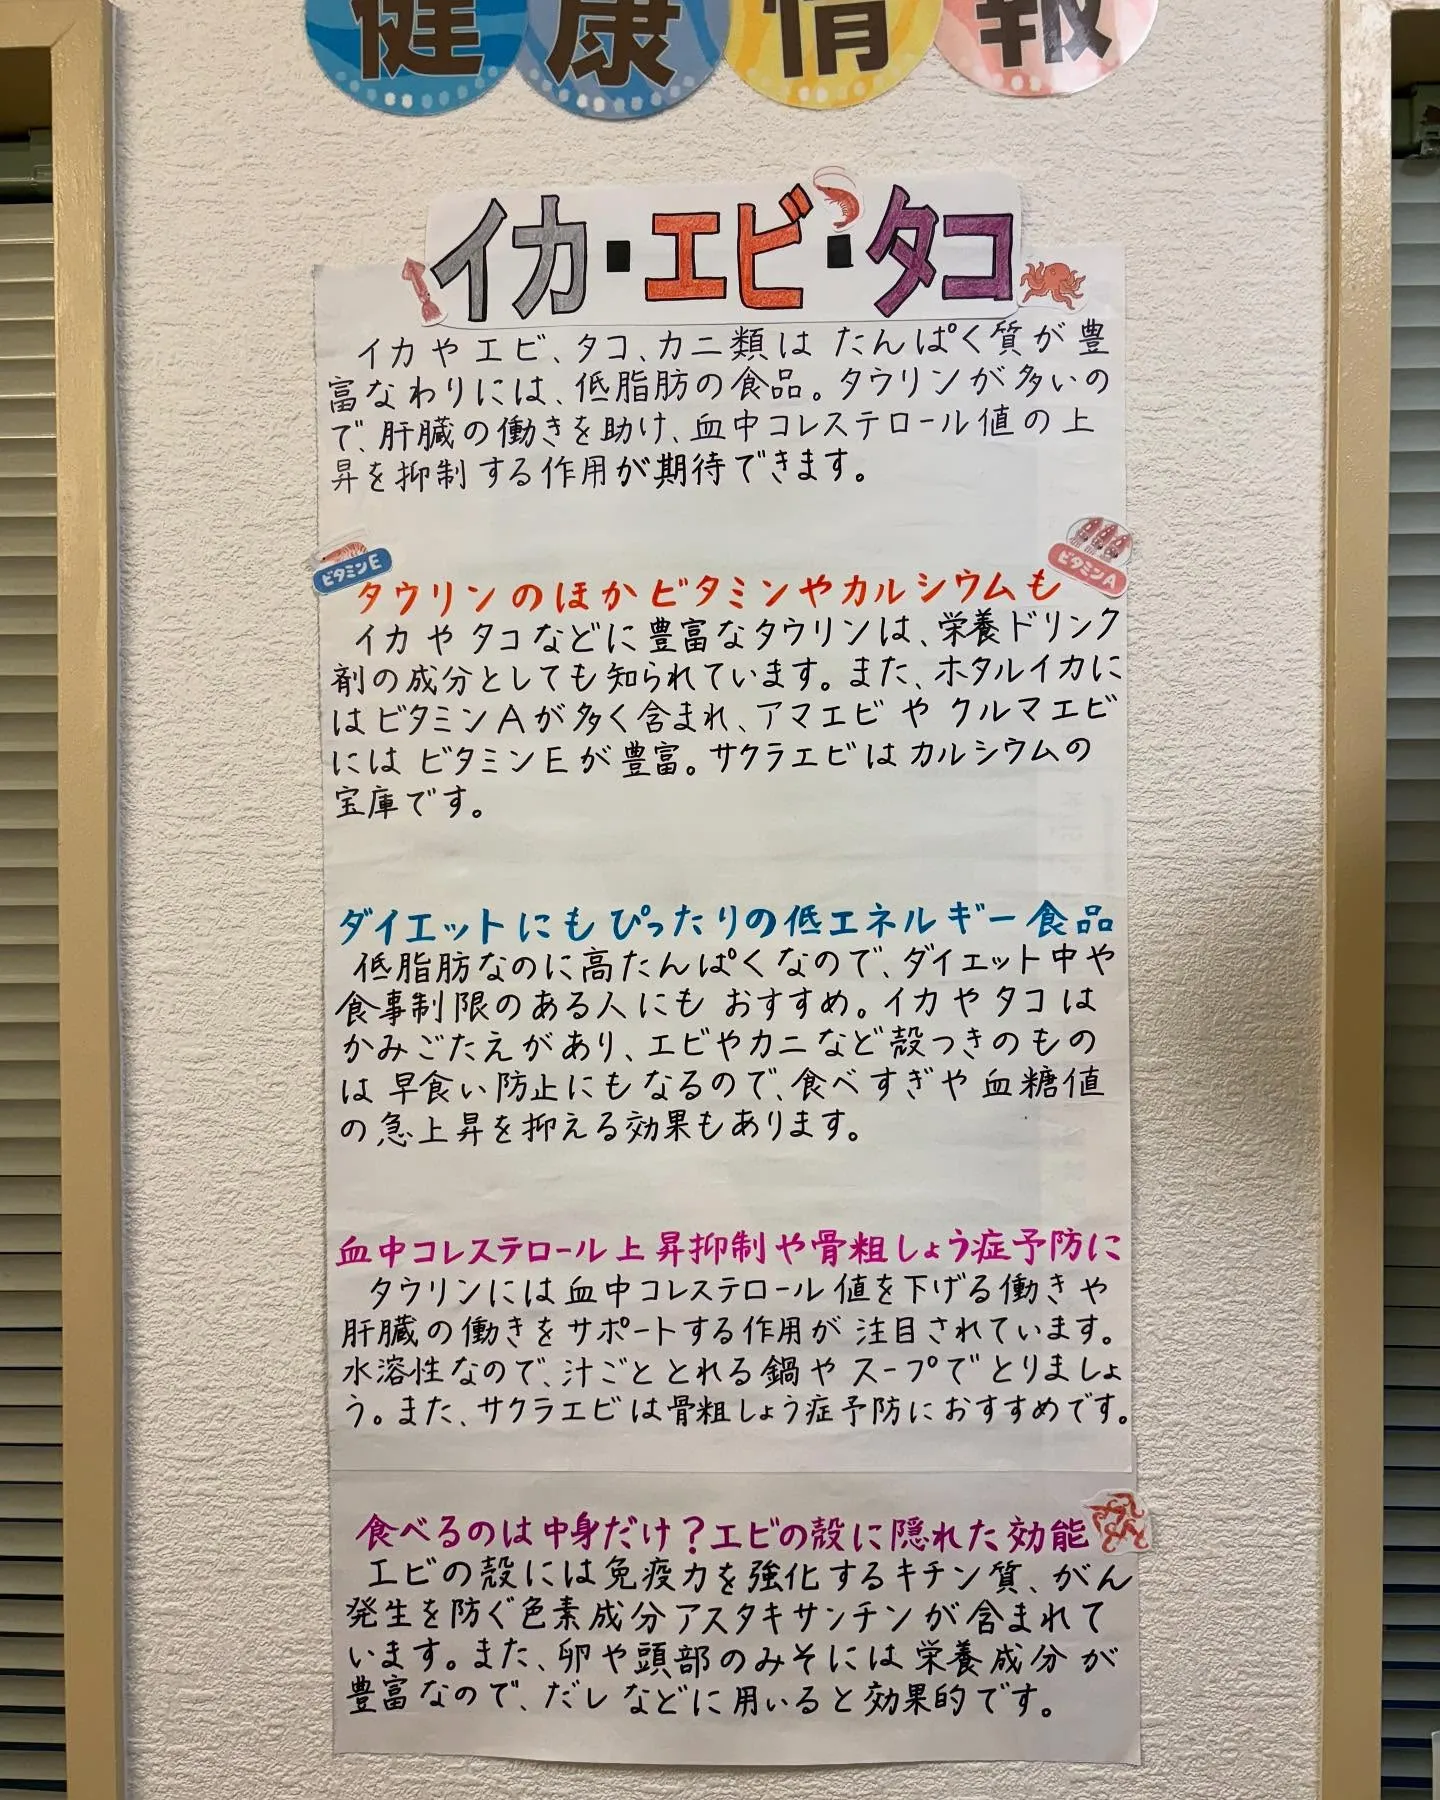 健康情報
イカ・エビ・タコ
イカやエビ、タコ、カニ類は たんぱく質が豊
富なわりには、低脂肪の食品。タウリンが多いの
で、肝臓の働きを助け、血中コレステロール値の上
昇を抑制する作用が期待できます。
ビタミンE
ビタミンA
タウリンのほかビタミンやカルシウムも
イカやタコなどに豊富なタウリンは、栄養ドリンク
剤の成分としても知られています。また、ホタルイカに
はビタミンAが多く含まれ、アマエビや クルマエビ
には ビタミンEが豊富。サクラエビはカルシウムの
宝庫です。
ダイエットにもぴったりの低エネルギー食品
低脂肪なのに高たんぱくなので、ダイエット中や
食事制限のある人にも おすすめ。イカやタコは
かみごたえがあり、エビやカニなど殻つきのもの
は早食い防止にもなるので、食べすぎや血糖値
の急上昇を抑える効果もあります。
血中コレステロール上昇抑制や骨粗しょう症予防に
タウリンには血中コレステロール値を下げる働きや
肝臓の働きをサポートする作用が注目されています。
水溶性なので、汁ごととれる鍋やスープでとりましょ
う。また、サクラエビは骨粗しょう症予防におすすめです。
食べるのは中身だけ？エビの殻に隠れた効能
エビの殻には免疫力を強化するキチン質、がん
発生を防ぐ色素成分アスタキサンチンが含まれて
います。また、卵や頭部のみそには栄養成分が
豊富なので、だしなどに用いると効果的です。